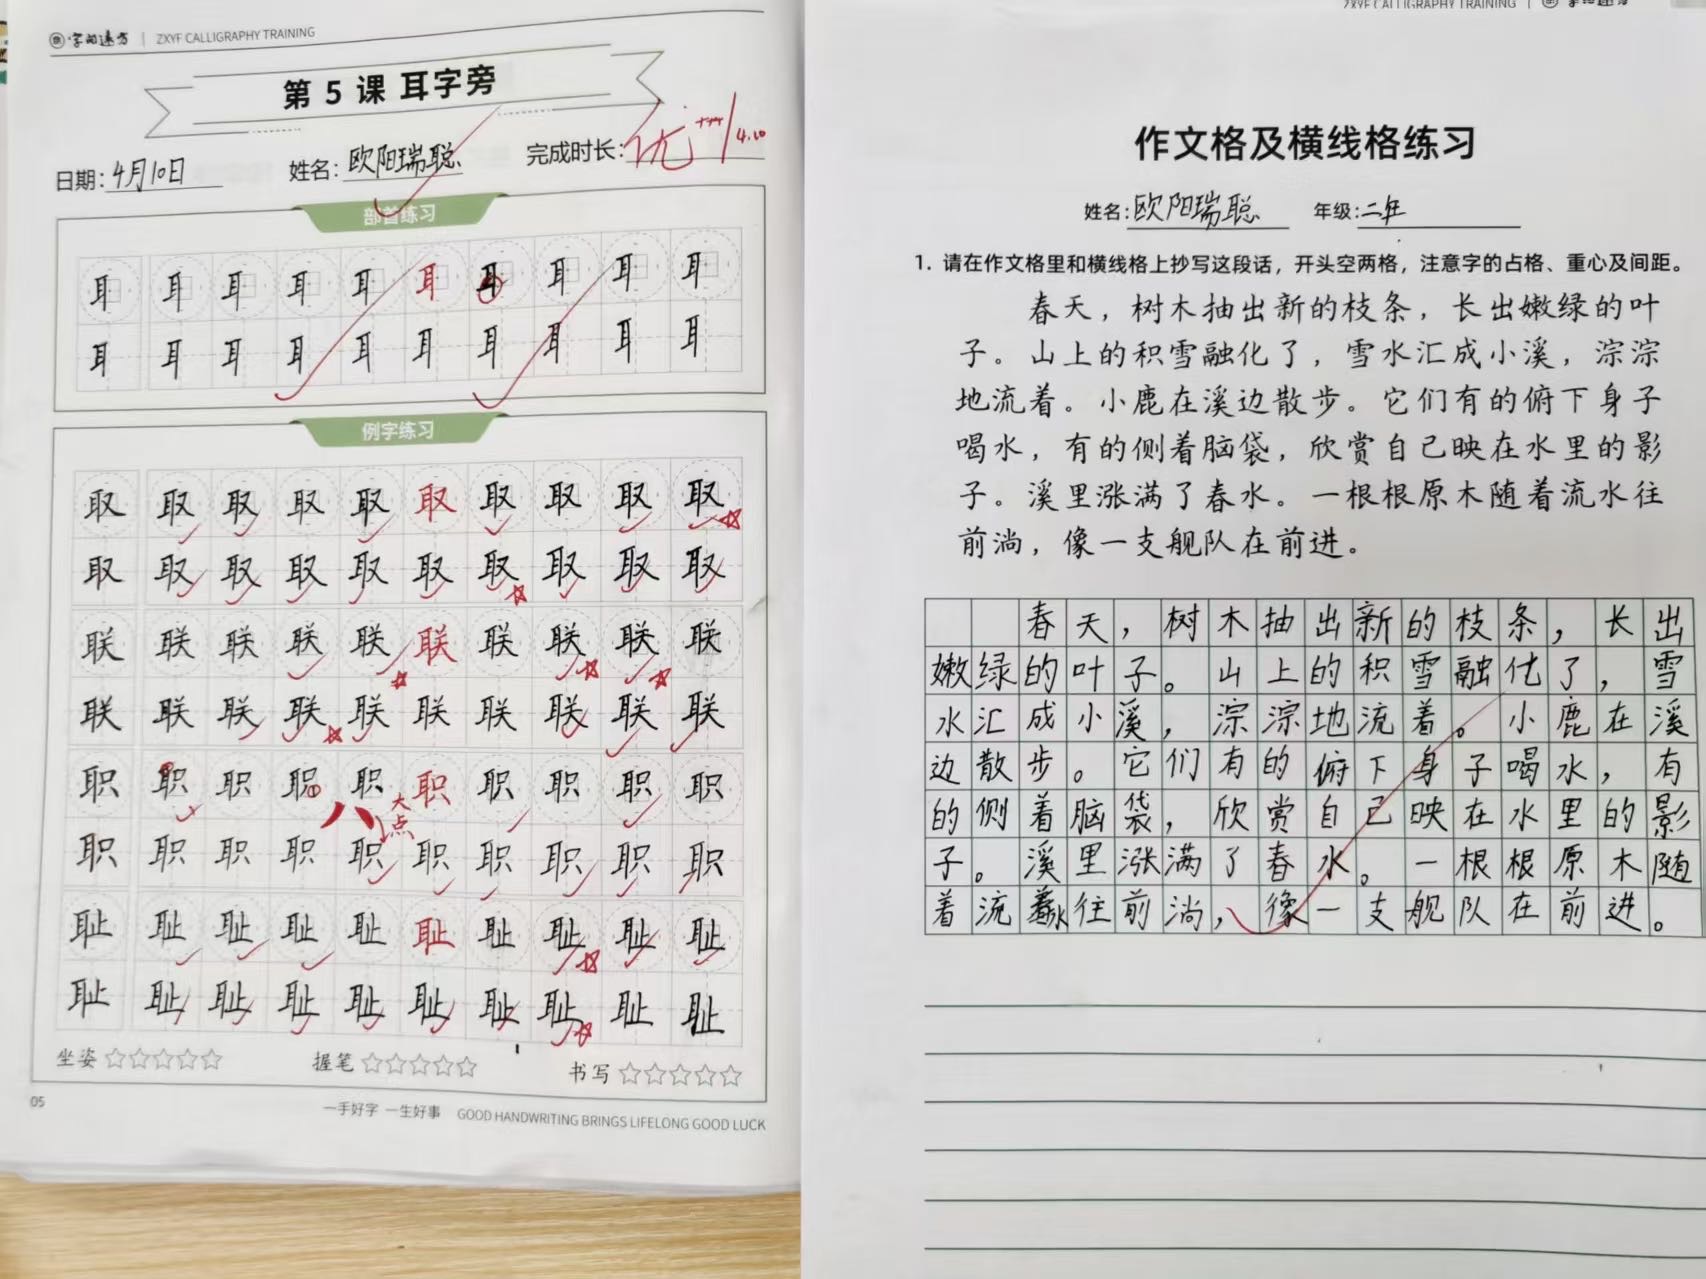 字的远方 | ZXYF CALLIGRAPHY TRAINING
第 5 课 耳字旁
日期:4月10日 姓名:欧阳瑞聪 完成时长:优 4.10
部首练习
耳 耳 耳 耳 耳 耳 耳 耳 耳 耳
耳 耳 耳 耳 耳 耳 耳 耳 耳 耳
例字练习
取 取 取 取 取 取 取 取 取 取
取 取 取 取 取 取 取 取 取 取
联 联 联 联 联 联 联 联 联 联
联 联 联 联 联 联 联 联 联 联
职 职 职 职 职 职 职 职 职 职
八 大点
职 职 职 职 职 职 职 职 职 职
耻 耻 耻 耻 耻 耻 耻 耻 耻 耻
耻 耻 耻 耻 耻 耻 耻 耻 耻 耻
坐姿☆☆☆☆☆ 握笔☆☆☆☆☆ 书写☆☆☆☆☆
05
一手好字 一生好事 GOOD HANDWRITING BRINGS LIFELONG GOOD LUCK
ZXYF CALLIGRAPHY TRAINING | 字的远方
作文格及横线格练习
姓名:欧阳瑞聪 年级:二年
1. 请在作文格里和横线格上抄写这段话，开头空两格，注意字的占格、重心及间距。
春天，树木抽出新的枝条，长出嫩绿的叶
子。山上的积雪融化了，雪水汇成小溪，淙淙
地流着。小鹿在溪边散步。它们有的俯下身子
喝水，有的侧着脑袋，欣赏自己映在水里的影
子。溪里涨满了春水。一根根原木随着流水往
前淌，像一支舰队在前进。
春天，树木抽出新的枝条，长出
嫩绿的叶子。山上的积雪融化了，雪
水汇成小溪，淙淙地流着。小鹿在溪
边散步。它们有的俯下身子喝水，有
的侧着脑袋，欣赏自己映在水里的影
子。溪里涨满了春水。一根根原木随
着流水往前淌，像一支舰队在前进。